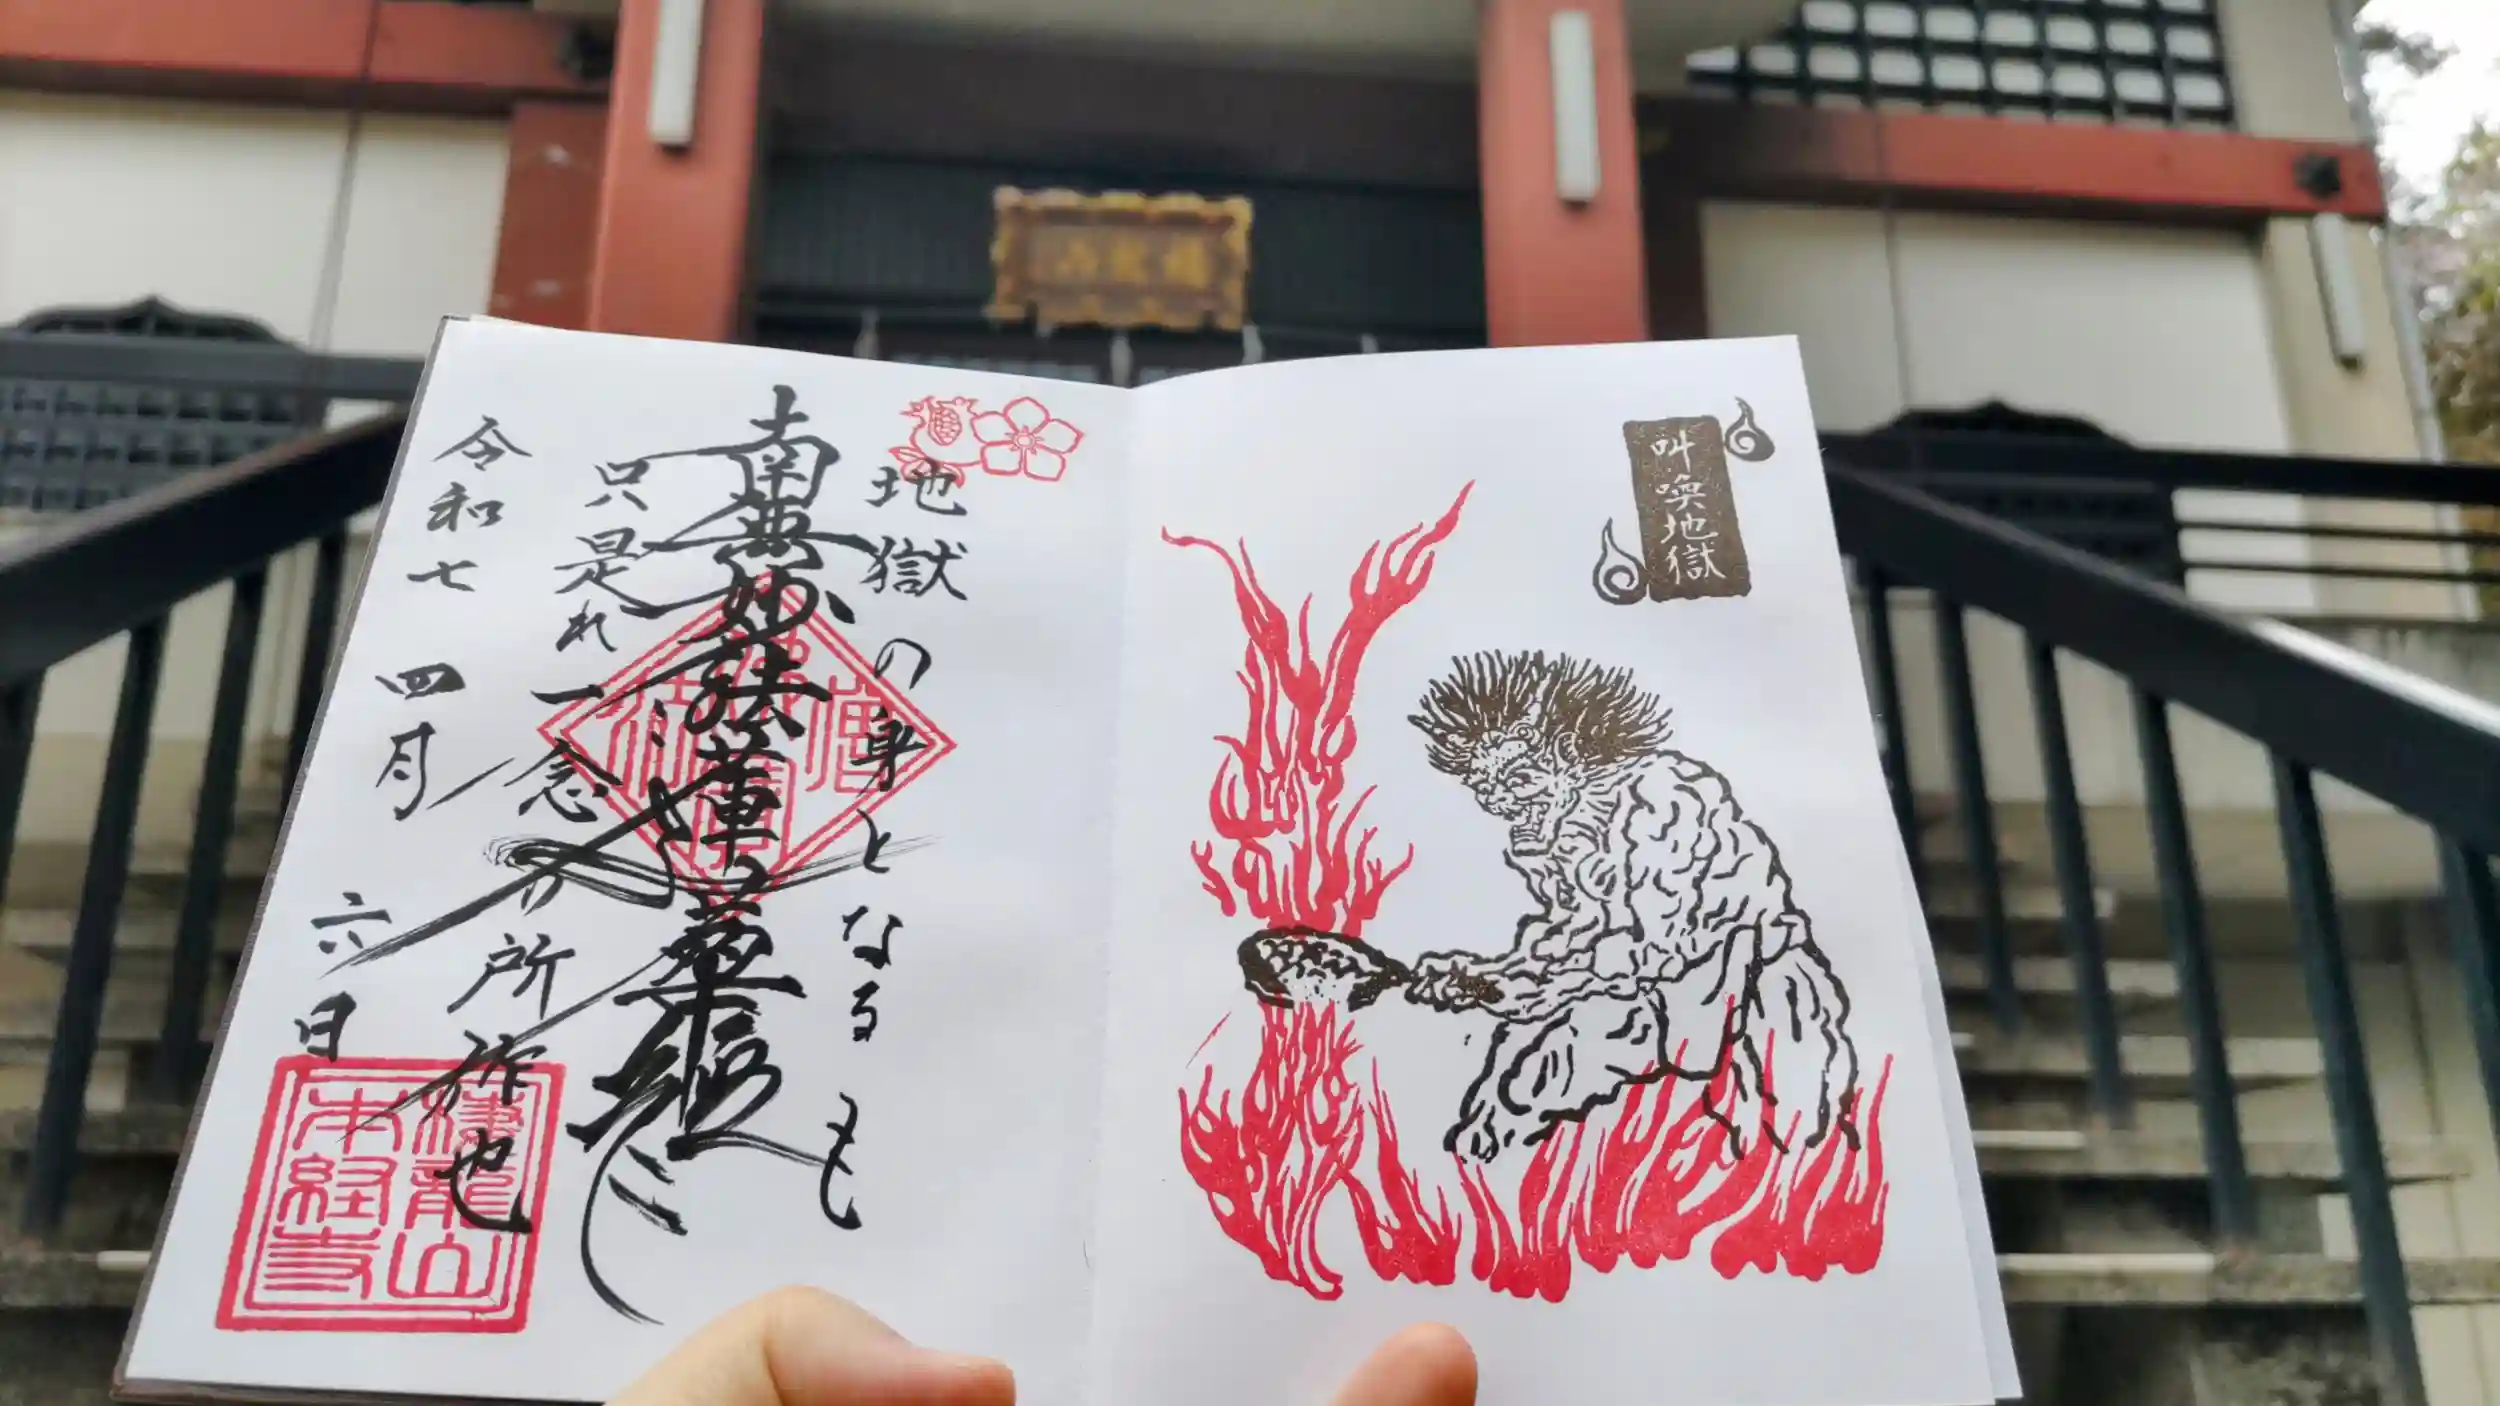 叫喚地獄
地獄の身となるも
南無妙法蓮華経
只是れ一念が所作也
令和七 四月 六日
本経寺